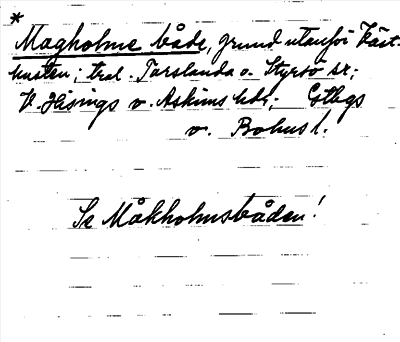 *
Magholme både, grund utanför Väst-
kusten; trol. Torslanda o. Styrsö sr;
V. Hisings o. Askims hdr; Gtbgs
o. Bohus l.
Se Måkholmsbådan!